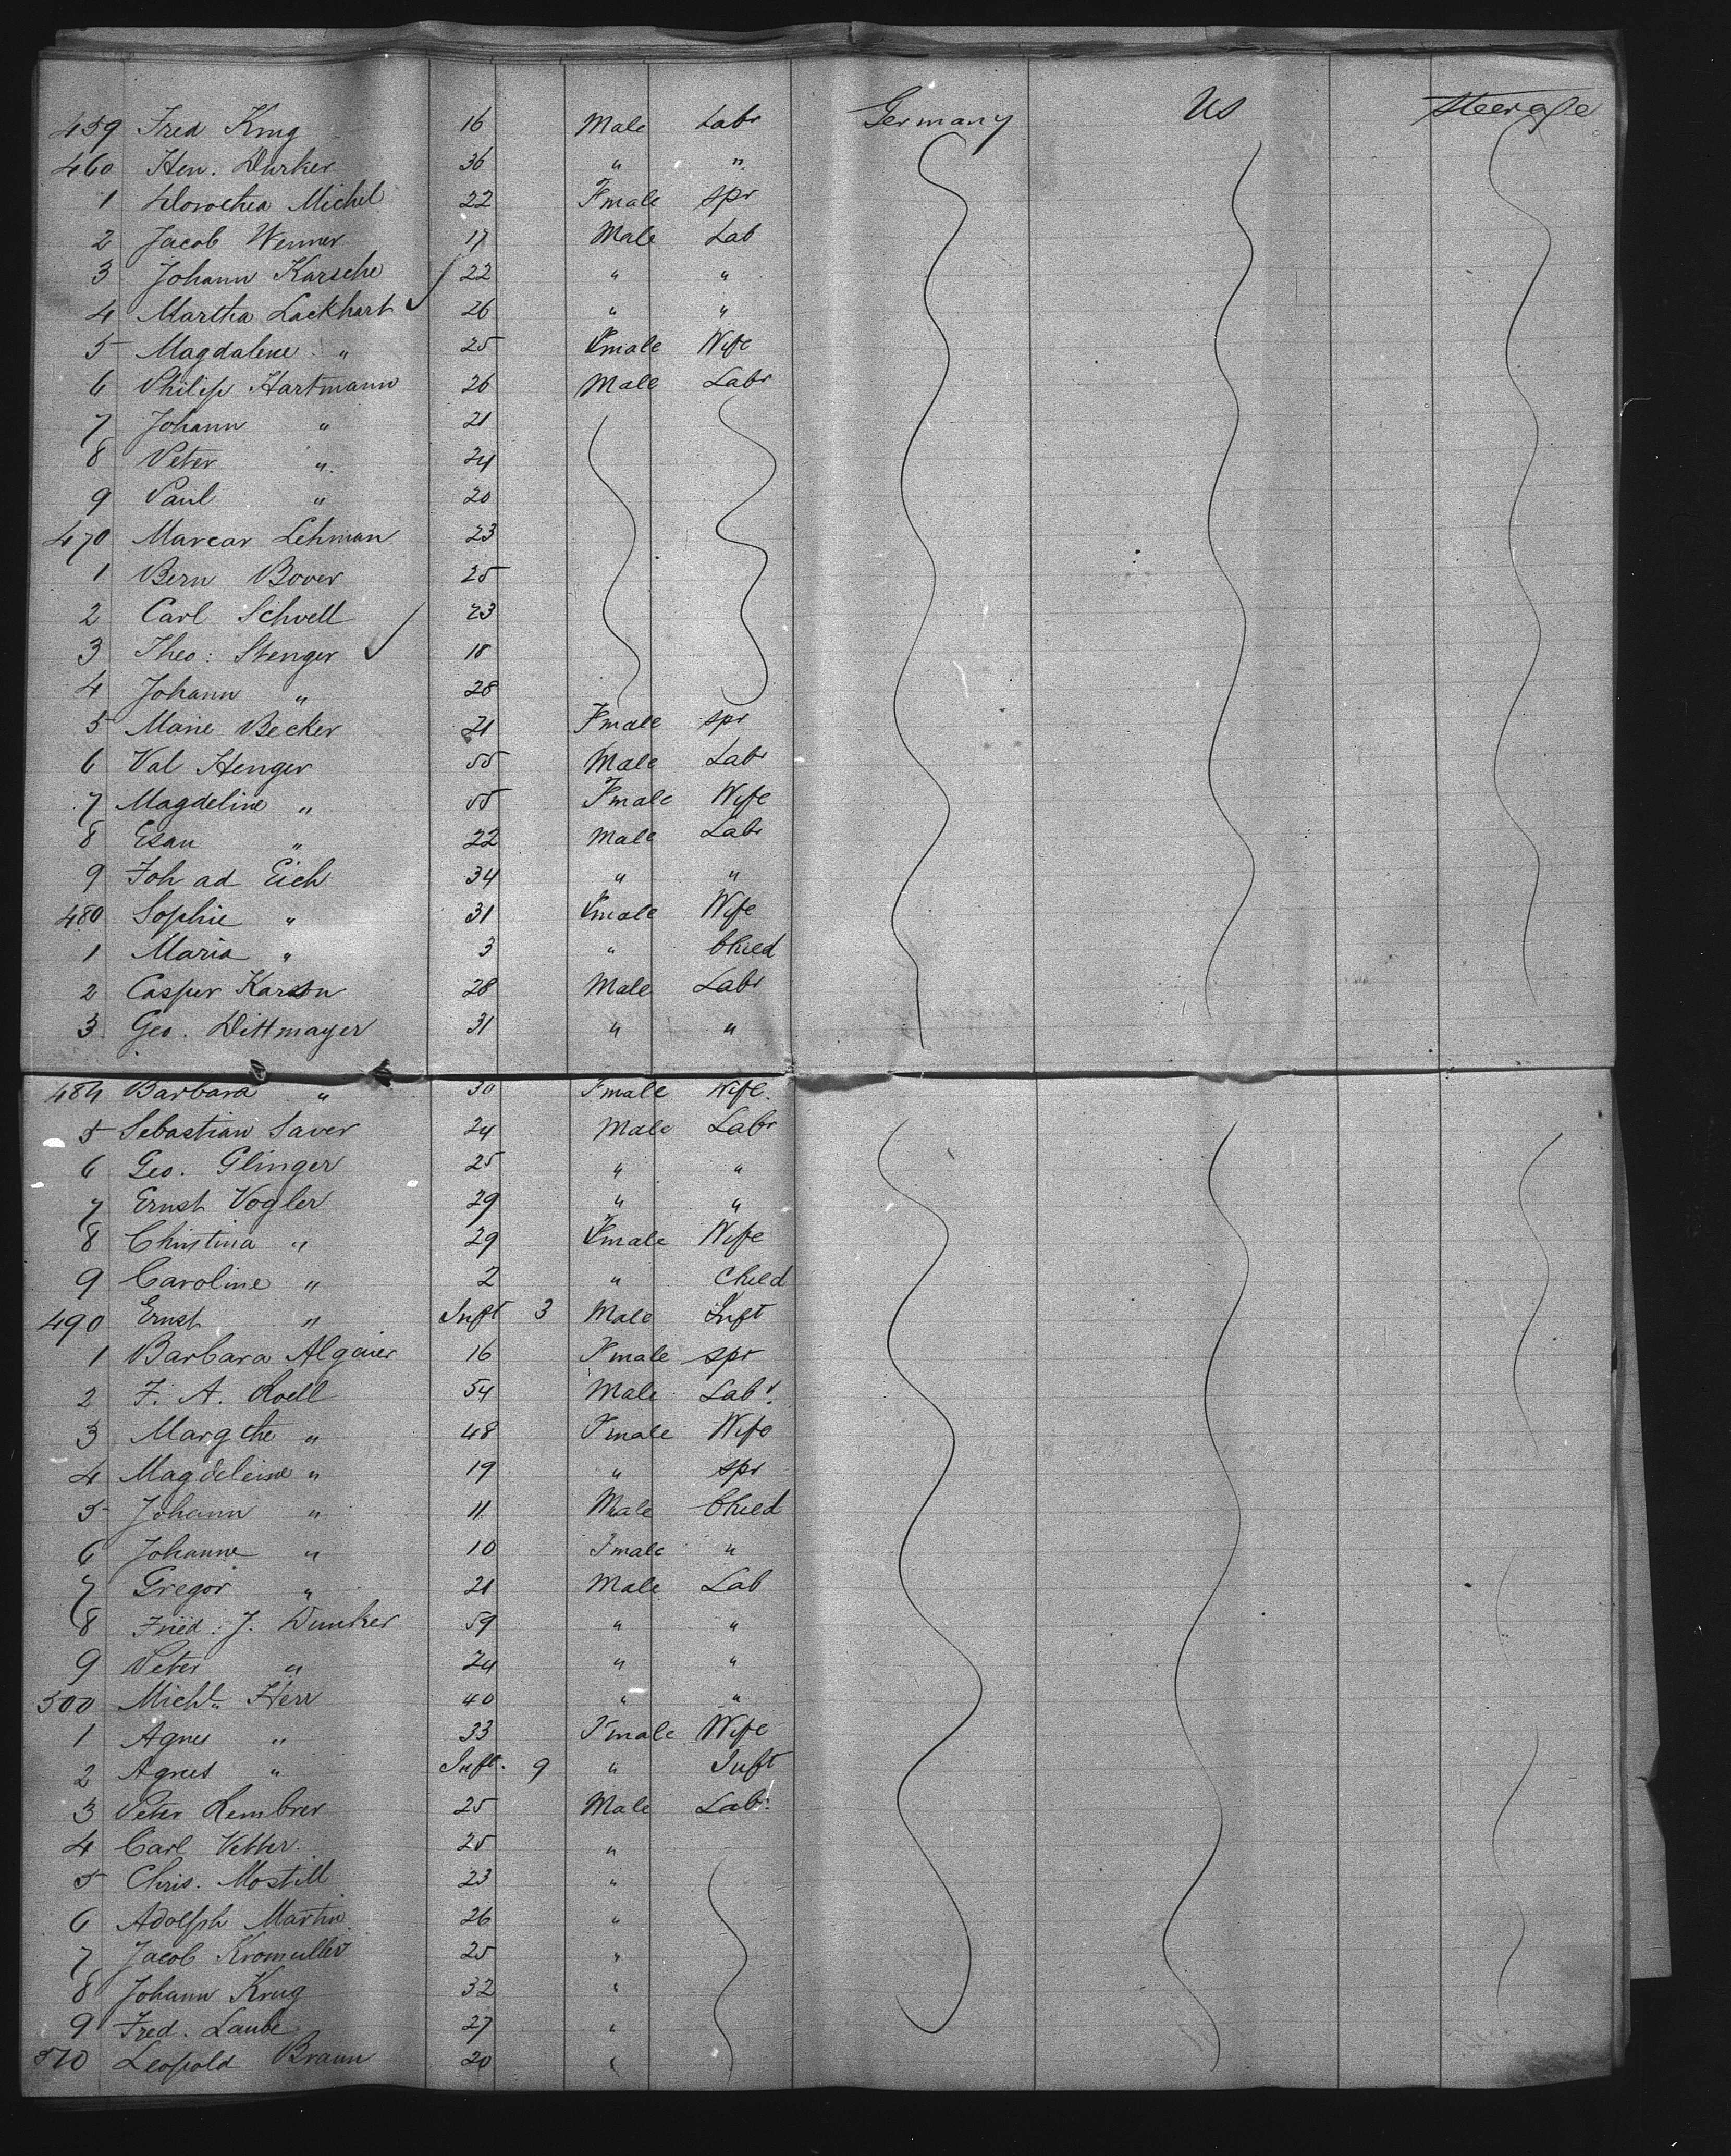 459 Fred Krug 16 Male Labr Germany US Steerage
460 Hen. Durker 36 " "
1 Dorothea Michel 22 Fmale spr
2 Jacob Wenner 17 Male Lab
3 Johann Karsche 22 " "
4 Martha Lackhart 26 " "
5 Magdalene " 25 Fmale Wife
6 Philip Hartmann 26 Male Labr
7 Johann " 21
8 Peter " 24
9 Paul " 20
470 Marcar Lehman 23
1 Bern Bover 25
2 Carl Schvell 23
3 Theo: Stenger 18
4 Johann " 28
5 Marie Becker 21 Fmale spr
6 Val Henger 55 Male Labr
7 Magdeline " 55 Fmale Wife
8 Esau " 22 Male Labr
9 Joh ad Eich 34 " "
480 Sophie " 31 Fmale Wife
1 Maria " 3 " Child
2 Casper Karson 28 Male Labr
3 Geo. Dittmayer 31 " "
484 Barbara " 30 Fmale Wife.
5 Sebastian Saver 24 Male Labr
6 Geo. Glinger 25 " "
7 Ernst Vogler 29 " "
8 Christina " 29 Fmale Wife
9 Caroline " 2 " Child
490 Ernst " Inft 3 Male Inft
1 Barbara Algaier 16 Fmale spr
2 F. A. Roell 54 Male Labr
3 Margthe " 48 Fmale Wife
4 Magdeleine " 19 " spr
5 Johann " 11 Male Child
6 Johanne " 10 Fmale "
7 Gregor " 21 Male Lab
8 Fried: J. Dunker 59 " "
9 Peter " 24 " "
500 Michl Herr 40 " "
1 Agnes " 33 Fmale Wife
2 Agnes " Inft. 9 " Inft
3 Peter Lembrer 25 Male Labr
4 Carl Vetter. 25 "
5 Chris. Mostill 23 "
6 Adolph Martin 26 "
7 Jacob Kromuller 25 "
8 Johann Krug 32 "
9 Fred. Laube 27 "
510 Leopold Braun 20 "